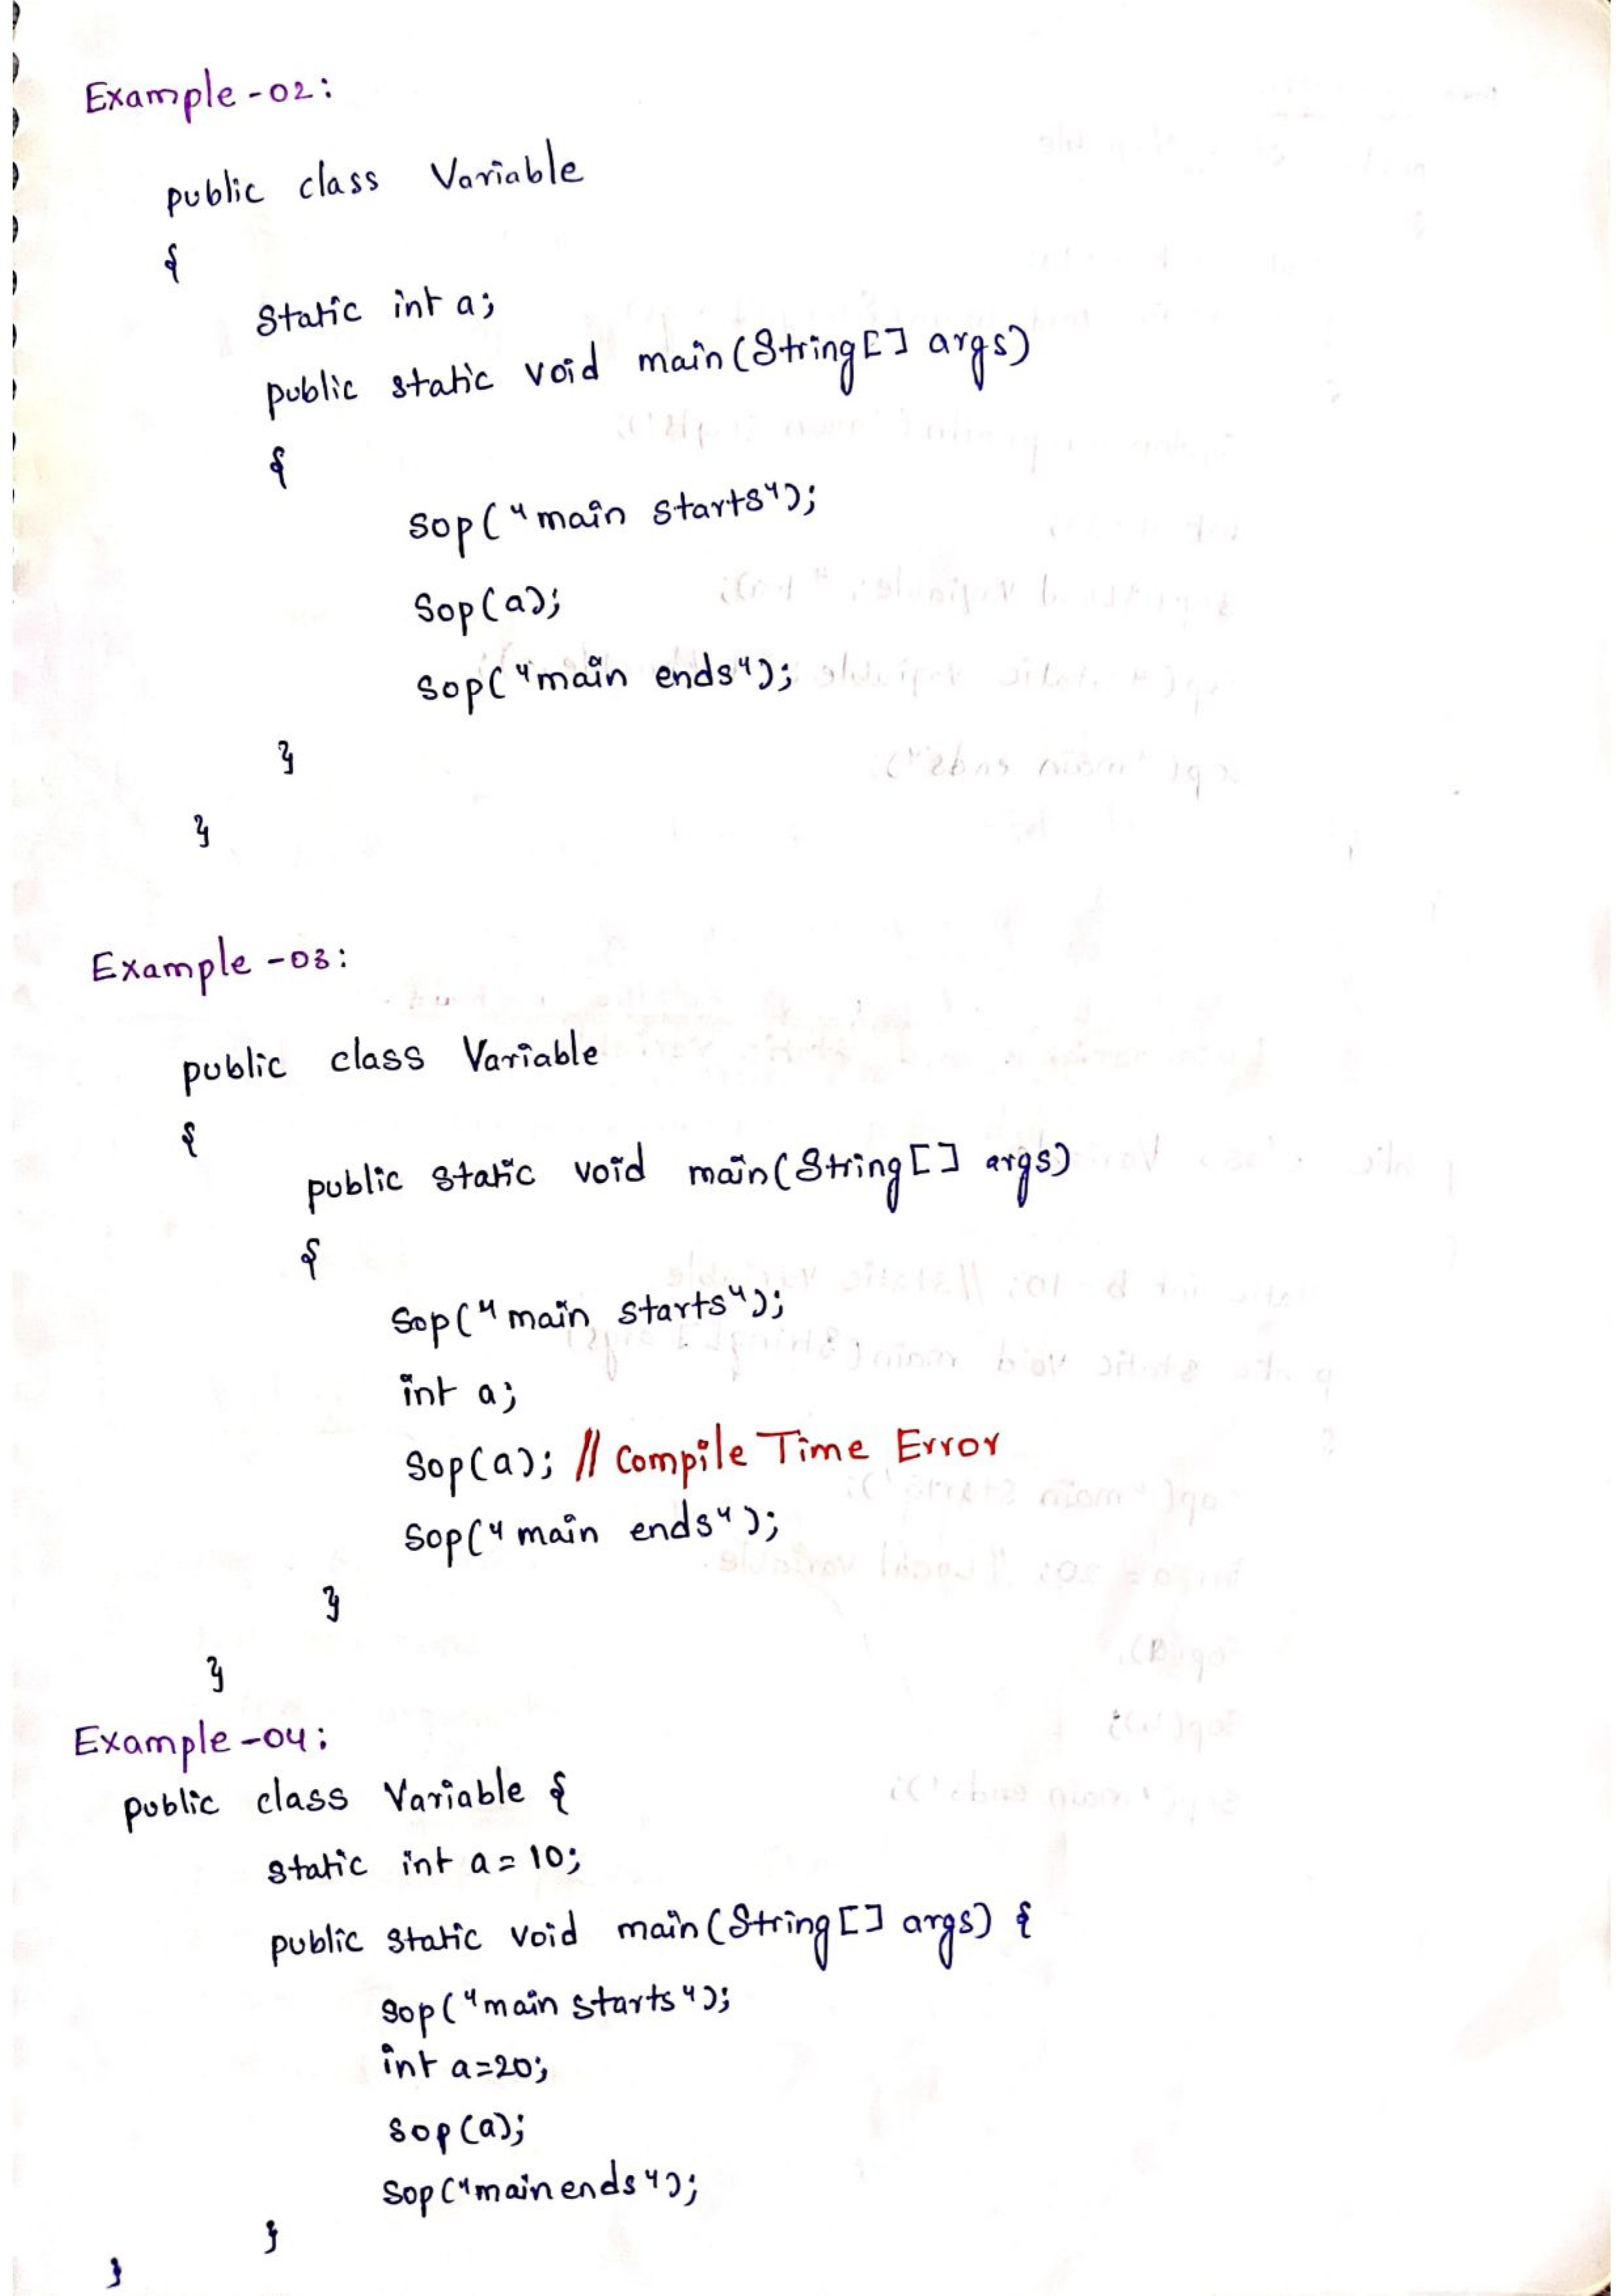 Example-02:
public class Variable
{
static int a;
public static void main(String[] args)
{
sop("main starts");
sop(a);
sop("main ends");
}
}
Example-03:
public class Variable
{
public static void main(String[] args)
{
sop("main starts");
int a;
sop(a); // Compile Time Error
sop("main ends");
}
}
Example-04:
public class Variable {
static int a=10;
public static void main(String[] args) {
sop("main starts");
int a=20;
sop(a);
sop("main ends");
}
}